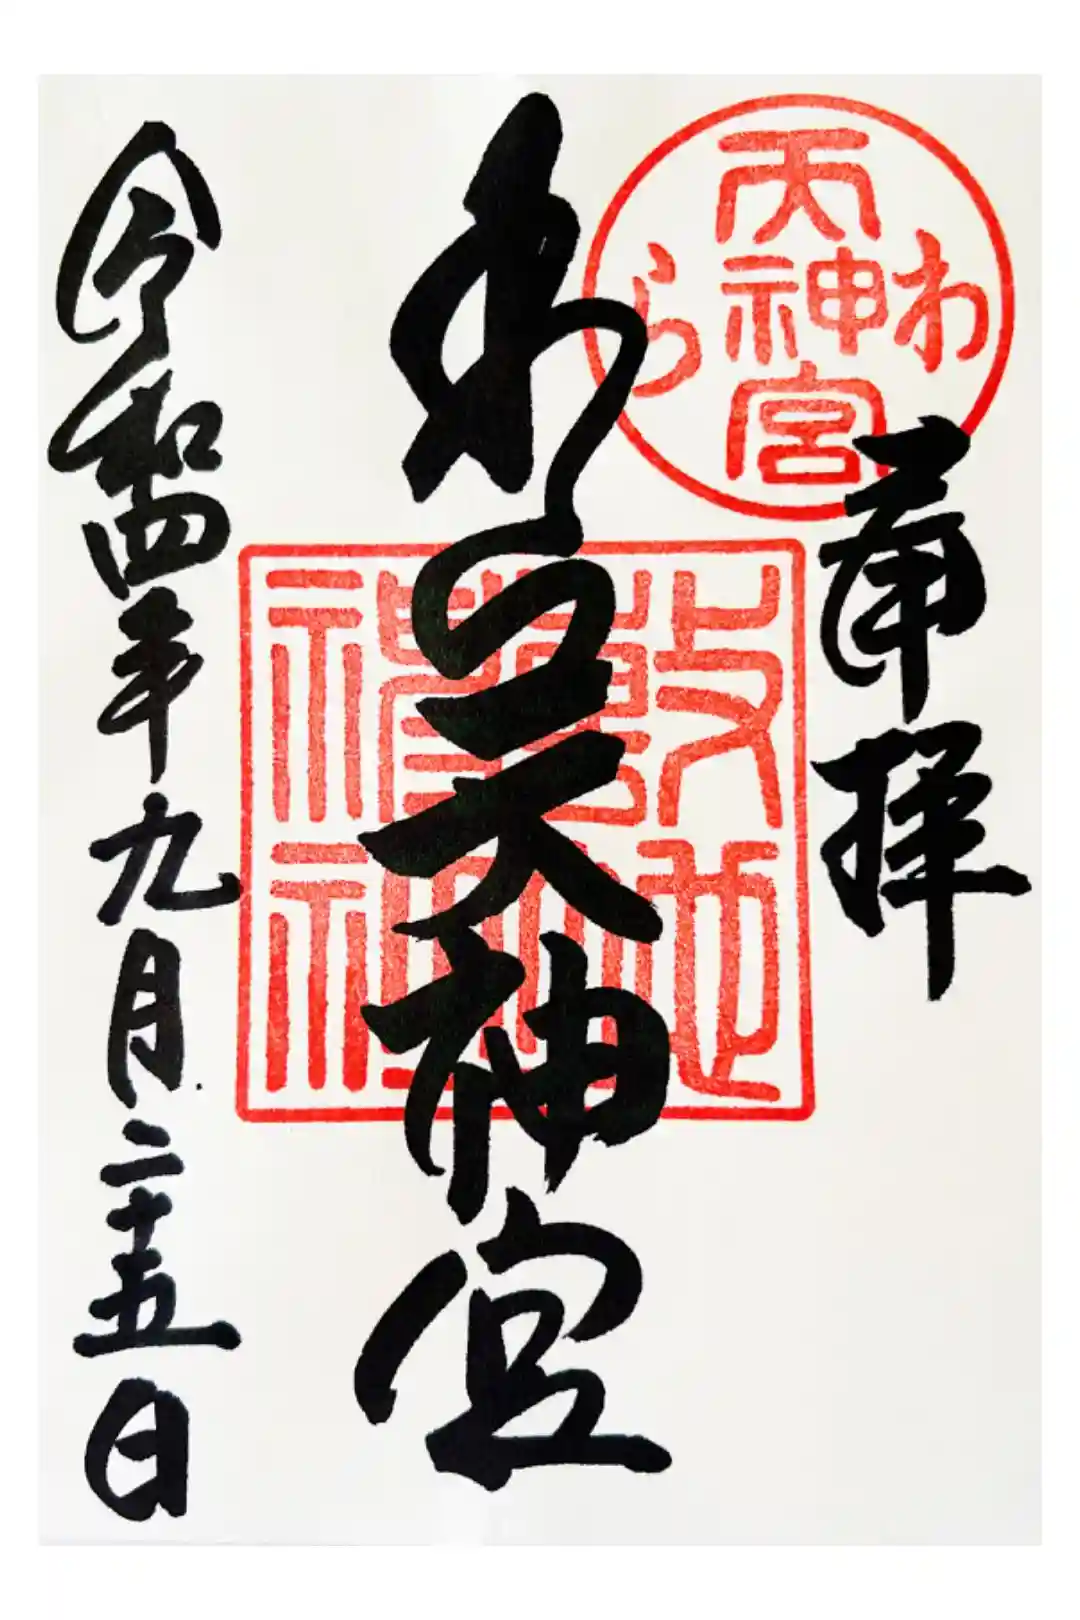 わら天神宮
奉拝
敷地神社
わら天神宮
令和四年九月二十五日